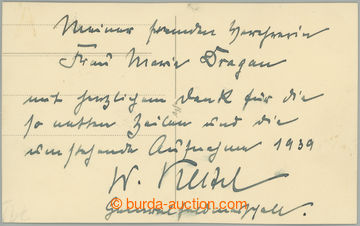 Meiner fremden Verehrerin
Frau Marie Dragan
mit herzlichem Dank für die
so netten Zeilen und die
umstehende Aufnahme 1939
W. Keitel
Generalfeldmarschall.
burda-auction.com